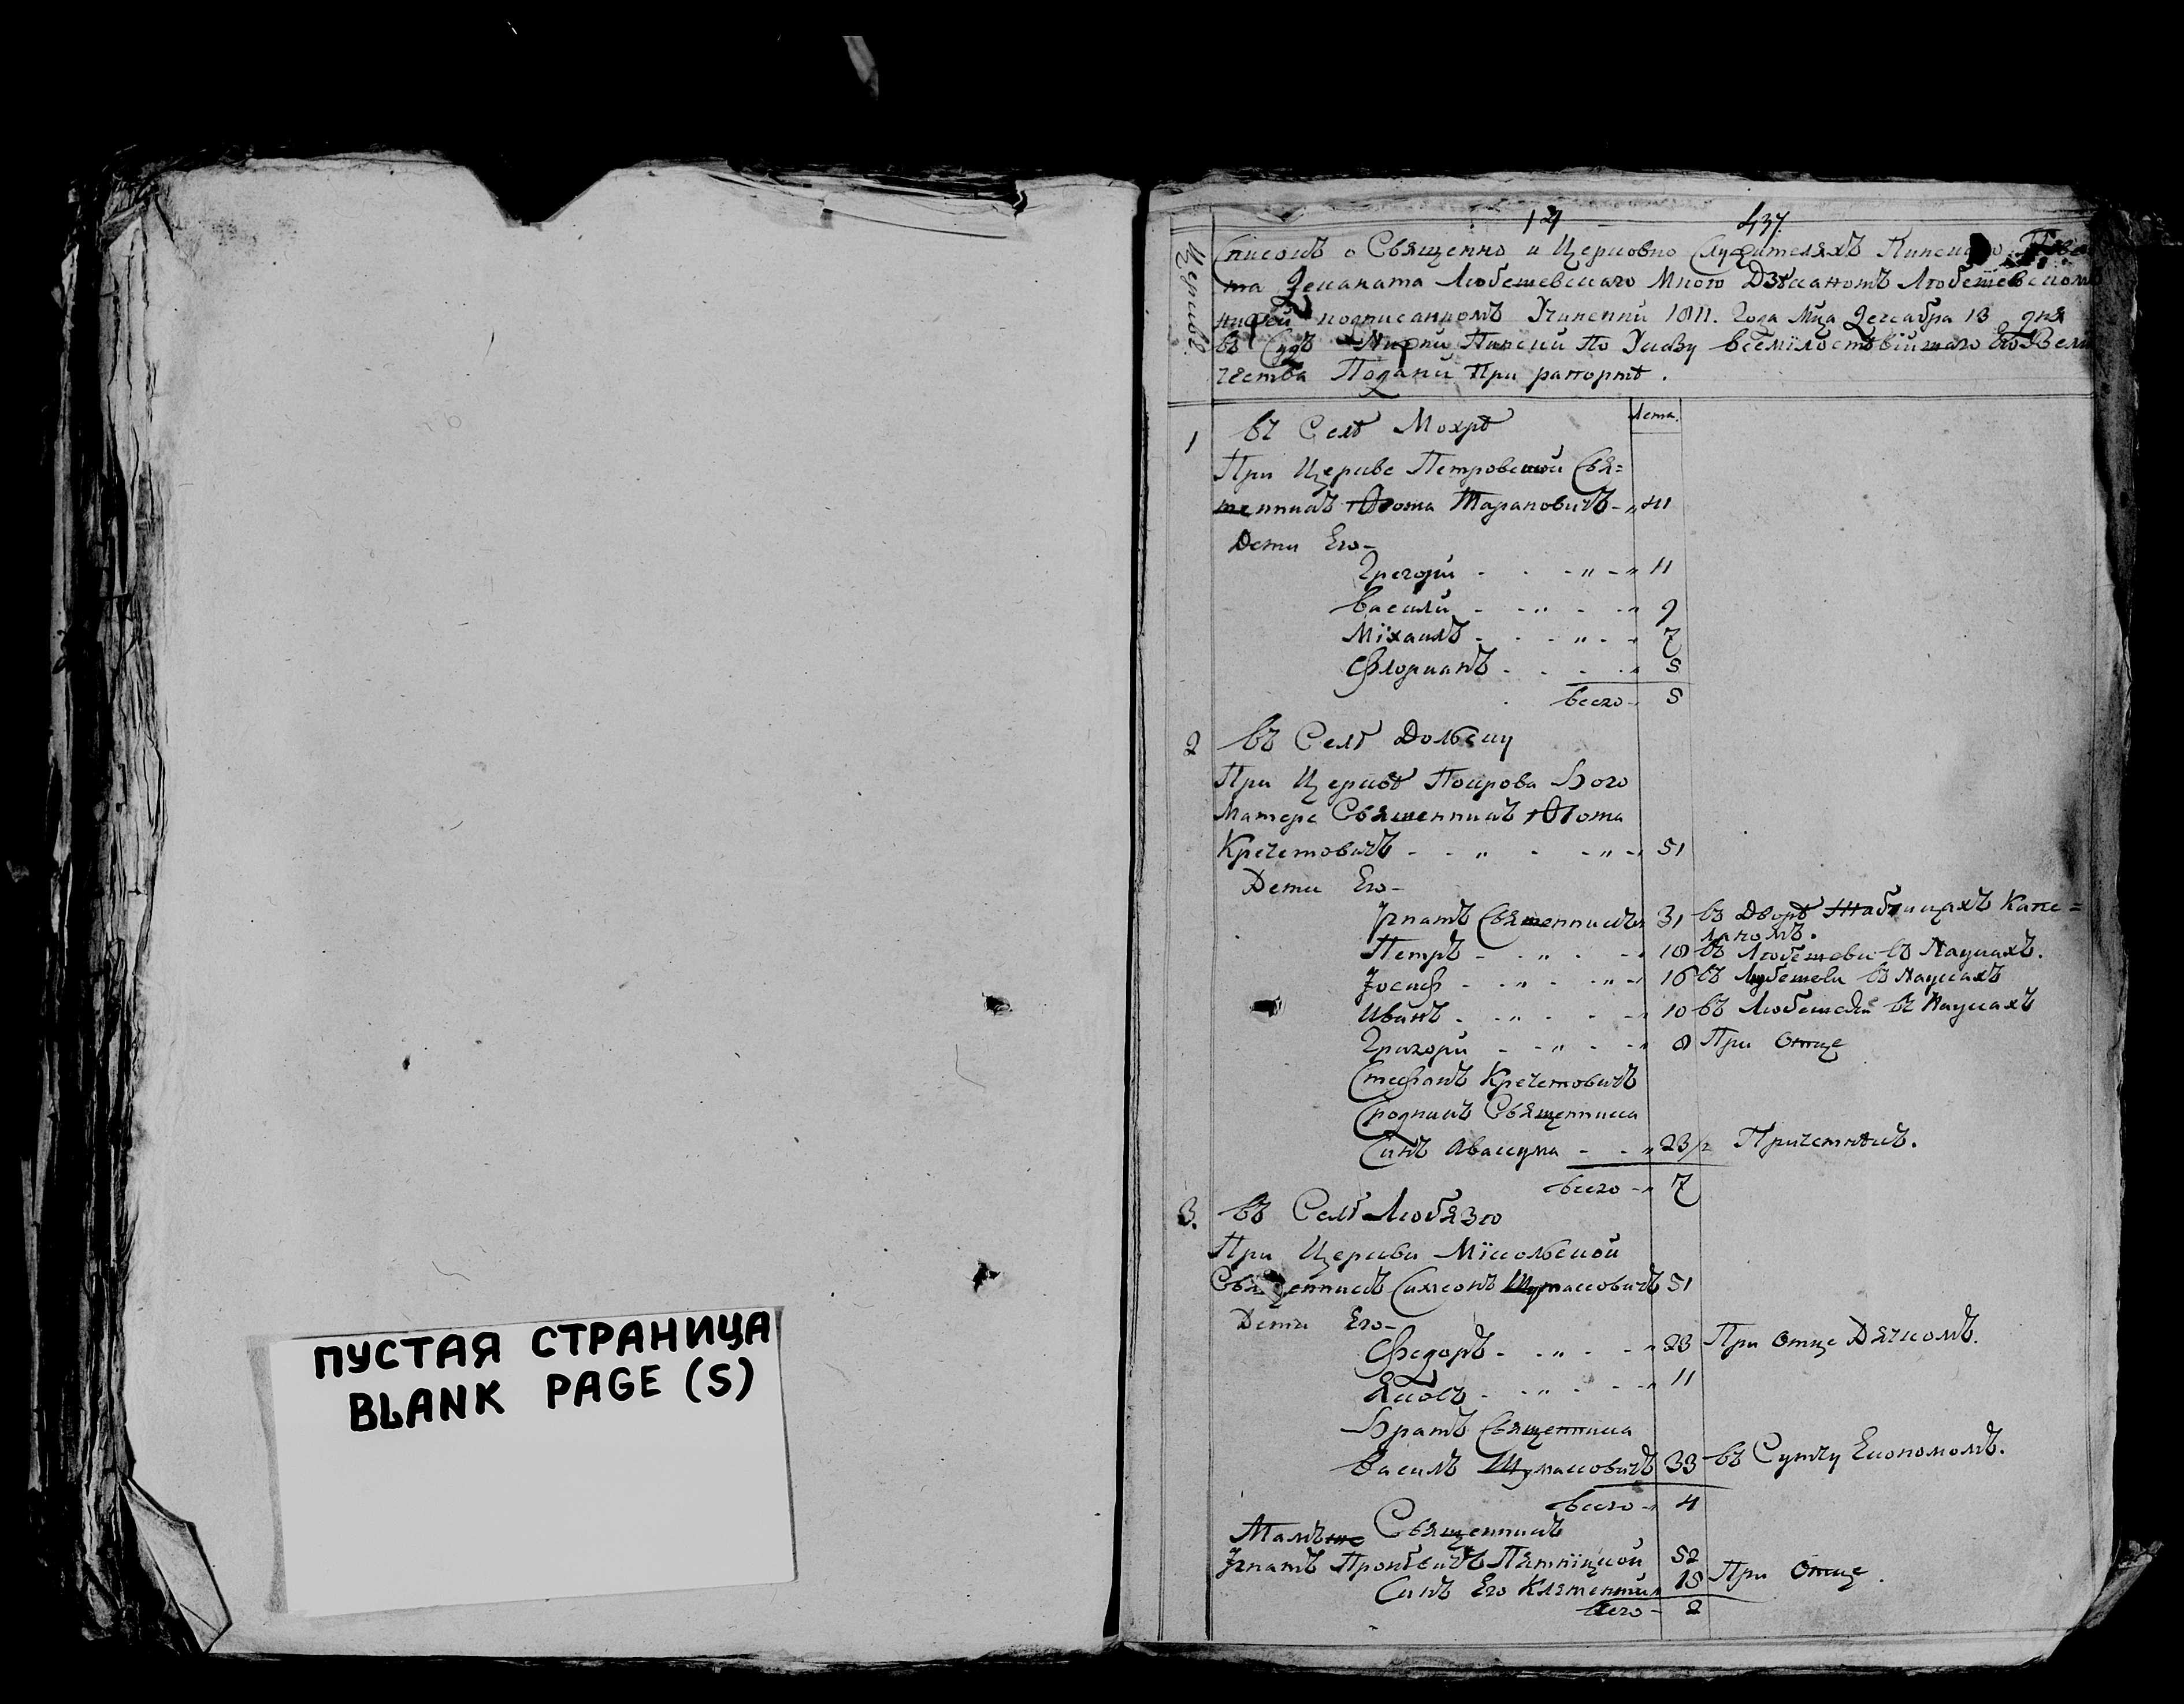 ПУСТАЯ СТРАНИЦА
BLANK PAGE (S)
437
Церкве.
Списокъ о Священно и Церковно Служителяхъ Пинского
та Деканата Любешевскаго Мною Дзѣканомъ Любешевском
подписаномъ Учиненни 1811. Года Мца Декабря 13 дня
въ Судъ Пинский По Указу Всемілоствійшаго Его Вели
чества Подани При рапортѣ.
Лета.
1 въ Селѣ Мохрѣ
При Церкве Петровской Свя=
щенникъ Ѳома Тарановичъ 41
Дети Его
Грегорій 11
Василій 9
Міхаилъ 7
Флориянъ 5
всего 5
2 въ Селѣ Дольску
При Церквѣ Покрова Бого
Матере Священникъ Ѳома
Кречетовичъ 51
Дети Его
Игнатъ Священникъ 31 въ Дворѣ Капе=
ляномъ.
Петръ 18 въ Любешеви въ Наукахъ.
Іосиф 16 въ Лубешеви въ Наукахъ
Иванъ 10 въ Любешеви въ Наукахъ
Григорій 8 При Отце
Стефанъ Кречетовичъ
Сродникъ Священника
Синъ Авакума 23 Причетникъ.
всего 7
3. въ Селѣ Любязю
При Церкви Мікольской
Священникъ Самсонъ 51
Дети Его
Федоръ 23 При Отце Дячкомъ.
Яковъ 11
Братъ Священника
Василъ 33 въ Економомъ.
всего 4
Тамъже Священникъ
Игнатъ Пятніцкой 52
Синъ Его Клементий 18 При Отце.
всего 2